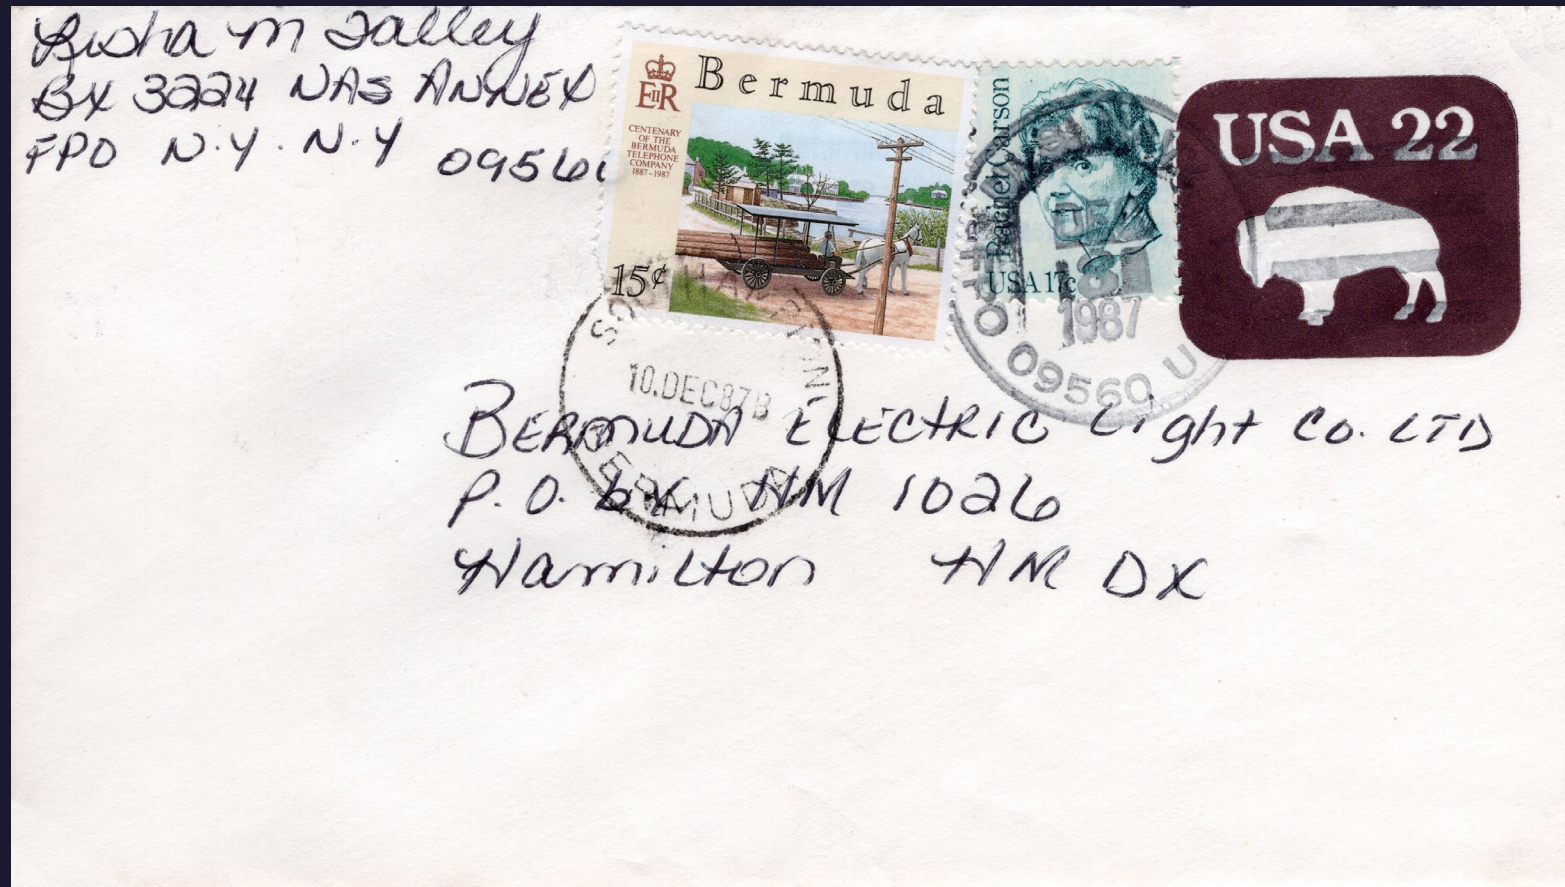 M Talley
BX 3224 NAS ANNEX
FPO N.Y. N.Y 0956
EIIR
Bermuda
CENTENARY
OF THE
BERMUDA
TELEPHONE
COMPANY
1887-1987
15¢
Rachel Carson
USA 17c
USA 22
1987
09560 U
10.DEC87B
BERMUDA
BERMUDA ELECTRIC Light Co. LTD
P.O. bx HM 1026
Hamilton HM DX